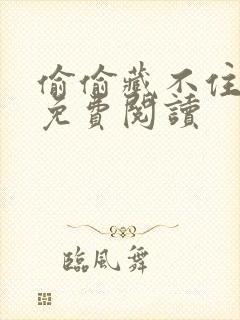 偷偷藏不住
免費閱讀
臨風舞